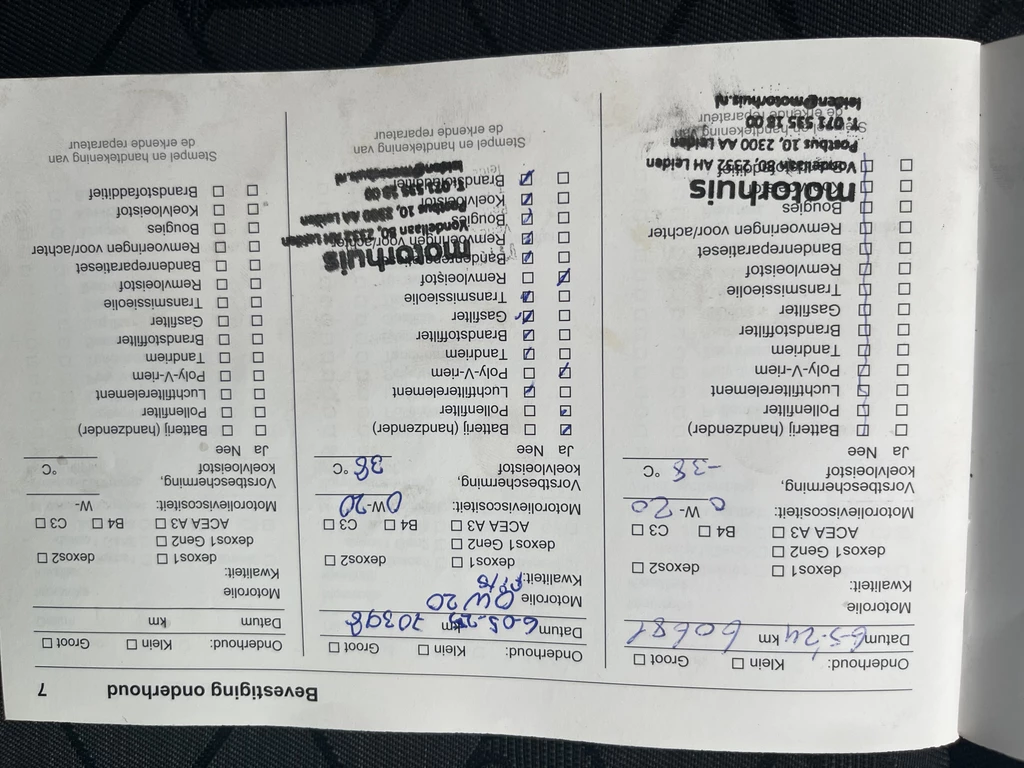 Bevestiging onderhoud 7
Onderhoud: Klein ☐ Groot ☐
Datum 6-5-'24 km 60681
Motorolie
Kwaliteit:
dexos1 ☐ dexos2 ☐
dexos1 Gen2 ☐
ACEA A3 ☐ B4 ☐ C3 ☐
Motorolieviscositeit: 0 W- 20
Vorstbescherming,
koelvloeistof -38 °C
Ja Nee
Batterij (handzender)
Pollenfilter
Luchtfilterelement
Poly-V-riem
Tandriem
Brandstoffilter
Gasfilter
Transmissieolie
Remvloeistof
Bandenreparatieset
Remvoeringen voor/achter
Bougies
motorhuis
Vondellaan 80, 2332 AH Leiden
Postbus 10, 2300 AA Leiden
T. 071 535 18 00
de erkende reparateur
leiden@motorhuis.nl
Onderhoud: Klein ☐ Groot ☐
Datum 6-05-25 km 70398
Motorolie 0W20
Kwaliteit:
dexos1 ☐ dexos2 ☐
dexos1 Gen2 ☐
ACEA A3 ☐ B4 ☐ C3 ☐
Motorolieviscositeit: 0 W- 20
Vorstbescherming,
koelvloeistof 38 °C
Ja Nee
Batterij (handzender)
Pollenfilter
Luchtfilterelement
Poly-V-riem
Tandriem
Brandstoffilter
Gasfilter
Transmissieolie
Remvloeistof
Bandenreparatieset
motorhuis
Remvoeringen voor/achter
Vondellaan 80, 2332 AH Leiden
Bougies
Postbus 10, 2300 AA Leiden
Koelvloeistof
T. 071 535 18 00
Brandstofadditief
leiden@motorhuis.nl
Stempel en handtekening van
de erkende reparateur
Onderhoud: Klein ☐ Groot ☐
Datum km
Motorolie
Kwaliteit:
dexos1 ☐ dexos2 ☐
dexos1 Gen2 ☐
ACEA A3 ☐ B4 ☐ C3 ☐
Motorolieviscositeit: W-
Vorstbescherming,
koelvloeistof °C
Ja Nee
Batterij (handzender)
Pollenfilter
Luchtfilterelement
Poly-V-riem
Tandriem
Brandstoffilter
Gasfilter
Transmissieolie
Remvloeistof
Bandenreparatieset
Remvoeringen voor/achter
Bougies
Koelvloeistof
Brandstofadditief
Stempel en handtekening van
de erkende reparateur